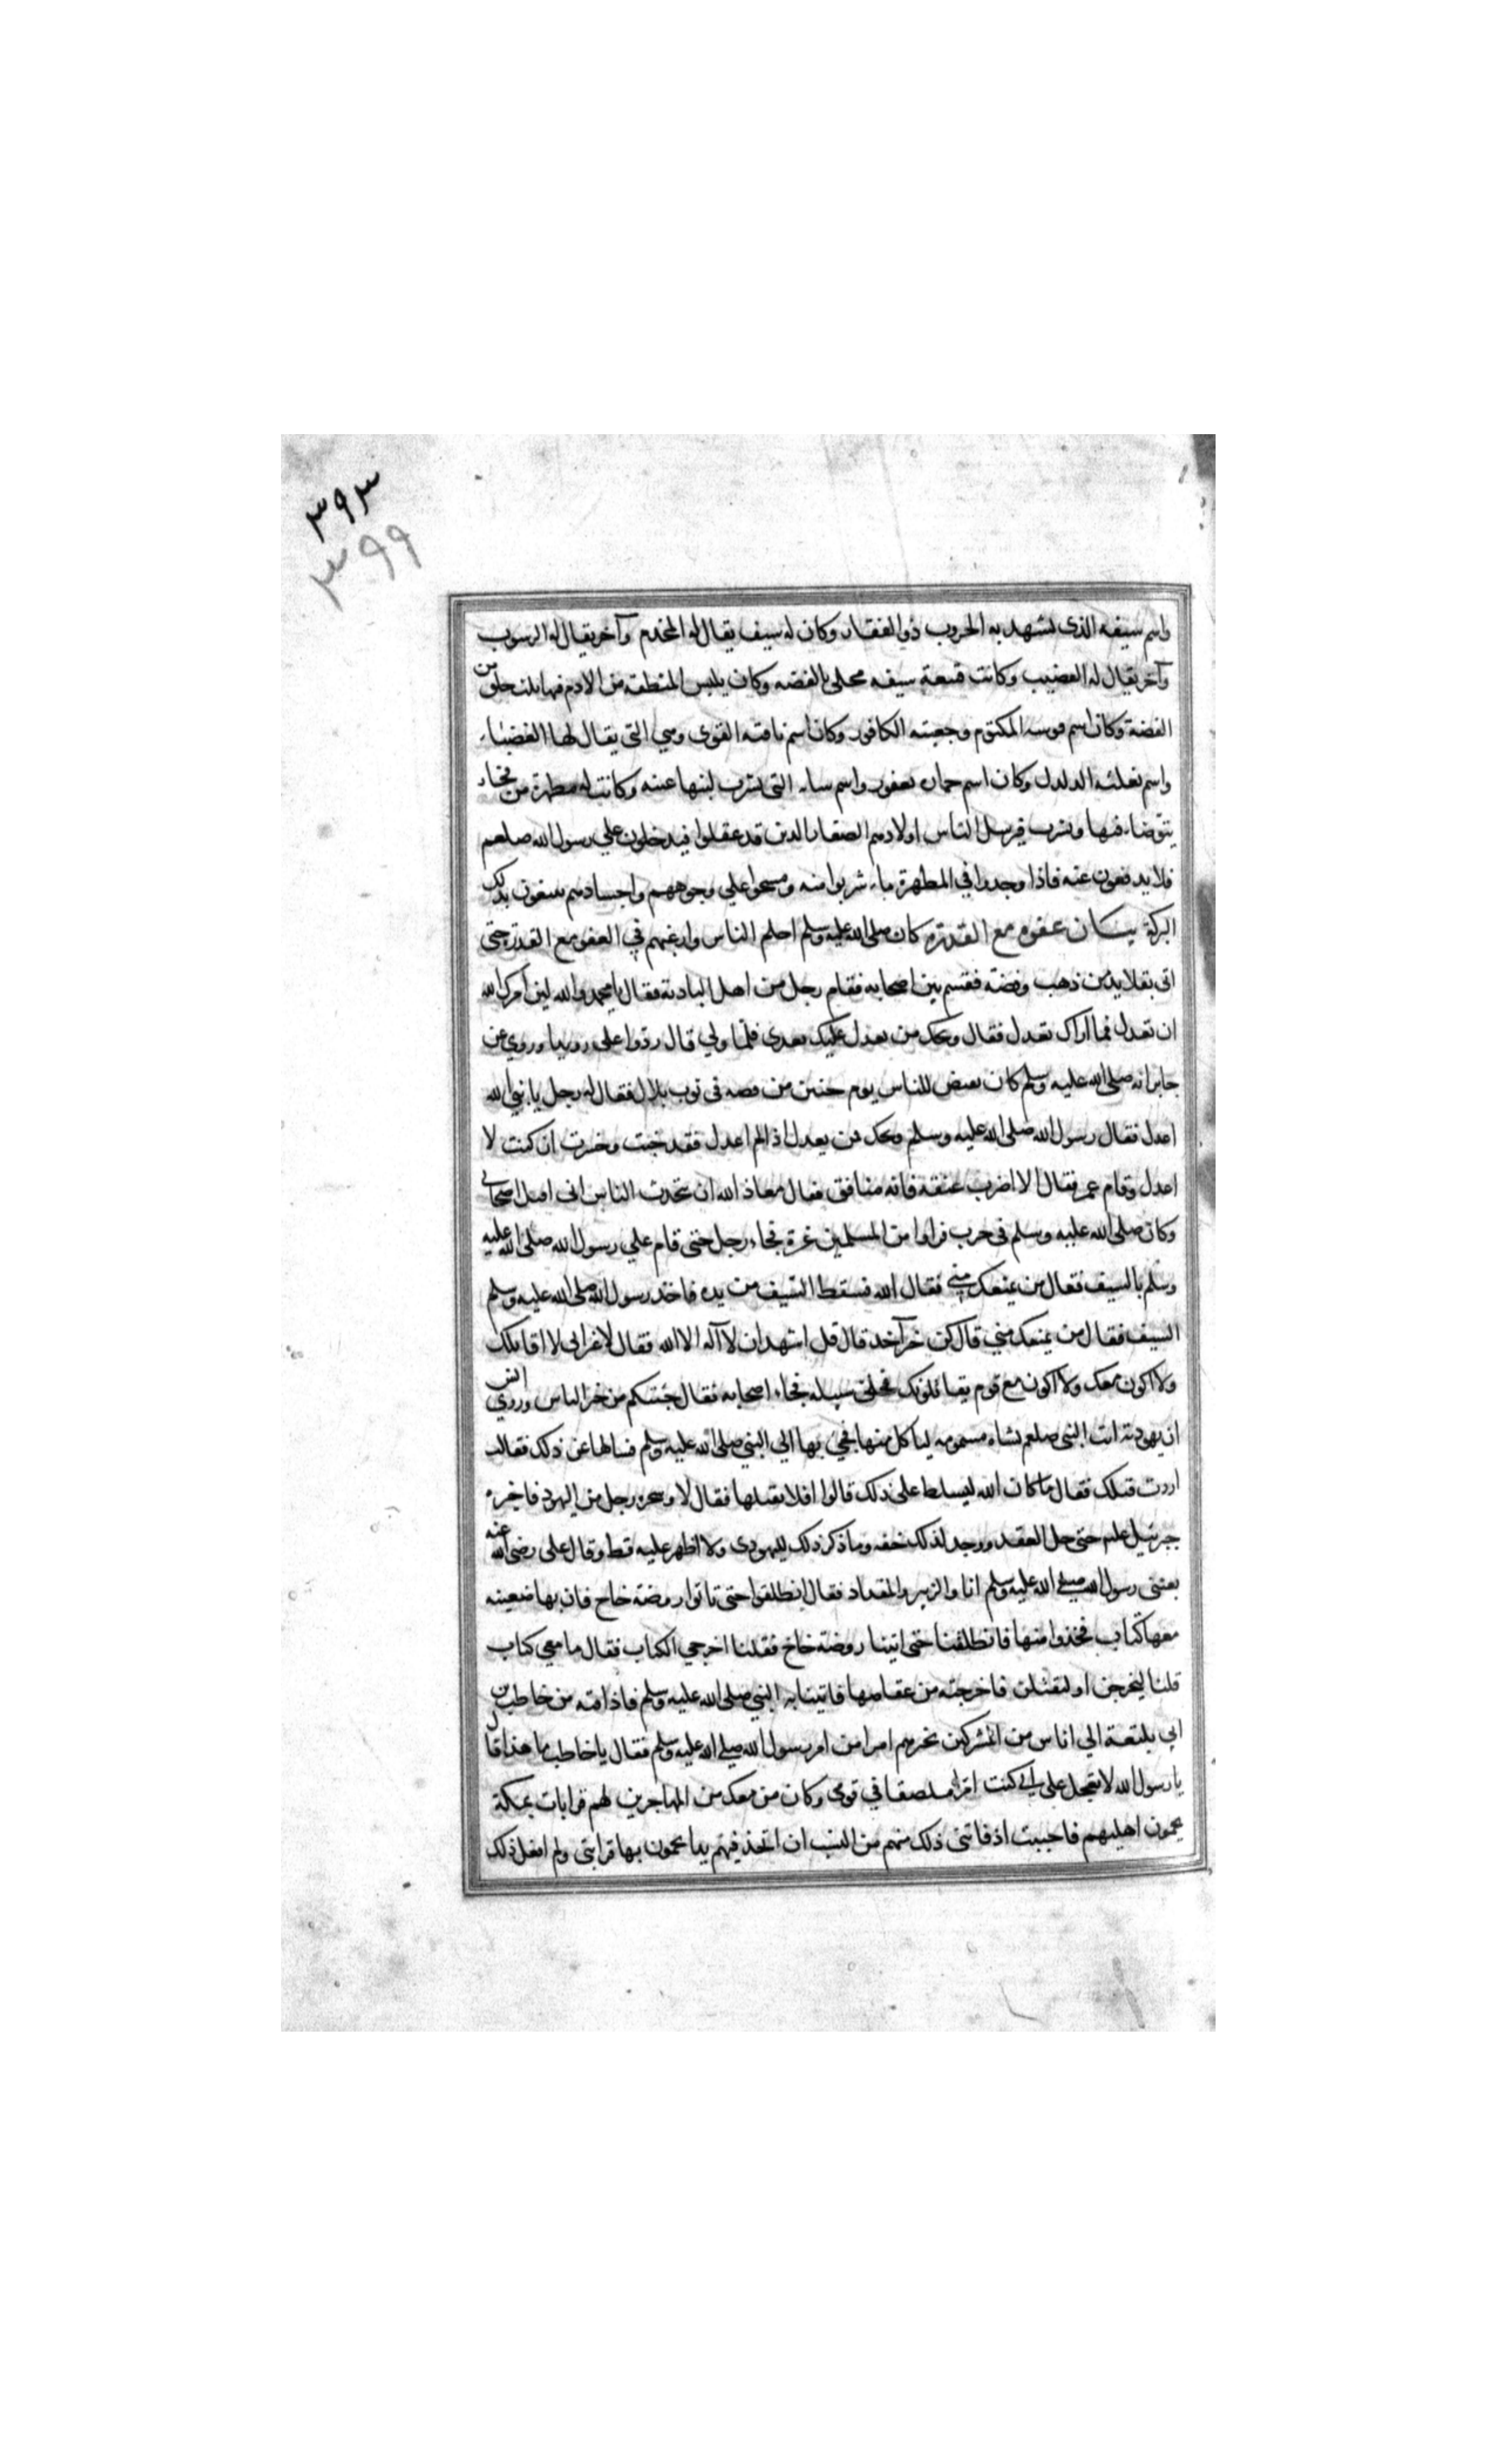 ٣٩٣
٣٩٩
واسم سيفه الذى تشهد به الحروب ذو الفقار وكان له سيف يقال له المخدم وآخر يقال له الرسوب
وآخر يقال له القضيب وكانت قبيعة سيفه محلى بالفضه وكان يلبس المنطقه من الادم فيها ثلث حلق من
الفضة وكان اسم قوسه المكتوم وجعبته الكافور وكان اسم ناقته القوى وهي التى يقال لها الغضباء
واسم بغلته الدلدل وكان اسم حماره يعفور واسم شاته التى يشرب لبنها عينه وكانت له مطهرة من فخار
يتوضاء فيها ويشرب فيرسل الناس اولادهم الصغار الذين قد عقلوا فيدخلون علي رسول الله صلعم
فلا يدفعون عنه فاذا وجدوا في المطهرة ماء شربوا منه ومسحوا علي وجوههم واجسادهم يبتغون بذلك
البركة بيـان عفوه مع القدرة كان صلى الله عليه وسلم احلم الناس وارغبهم في العفو مع القدرة حتى
اتى بقلايد من ذهب وفضة فقسم بين اصحابه فقام رجل من اهل البادية فقال يا محمد والله لين امرك الله
ان تعدل فما اراك تعدل فقال ويحك من يعدل عليك بعدى فلما ولي قال ردوا على رويدا وروي عن
جابر انه صلى الله عليه وسلم كان يقبض للناس يوم حنين من فضه فى ثوب بلال فقال له رجل يا نبي الله
اعدل فقال رسول الله صلى الله عليه وسلم ويحك من يعدل اذا لم اعدل فقد خبت وخسرت ان كنت لا
اعدل وقام عمر فقال الا اضرب عنقه فانه منافق فقال معاذ الله ان يتحدث الناس انى اقتل اصحابي
وكان صلى الله عليه وسلم فى حرب فراوا من المسلمين غرة فجاء رجل حتى قام علي رسول الله صلى الله عليه
وسلم بالسيف فقال من يمنعك مني فقال الله فسقط السيف من يده فاخذ رسول الله صلى الله عليه وسلم
السيف فقال من يمنعك مني قال كن خير آخذ قال قل اشهد ان لا آله الا الله فقال لا غير انى لا اقاتلك
ولا اكون معك ولا اكون مع قوم يقاتلونك فخلى سبيله فجاء اصحابه فقال جئتكم من خير الناس وروي انس
ان يهودية اتت النبى صلعم بشاه مسمومه لياكل منها فجئ بها الي النبي صلى الله عليه وسلم فسالها عن ذلك فقالت
اردت قتلك فقال ما كان الله ليسلط على ذلك قالوا افلا نقتلها فقال لا وسحره رجل من اليهود فاخبره
جبرئيل علىم حتى حل العقد ووجد لذلك خفه وما ذكر ذلك لليهودى ولا اظهر عليه قط وقال على رضى الله عنه
بعثنى رسول الله صلے الله عليه وسلم انا والزبير والمقداد فقال انطلقوا حتى تاتوا روضة خاخ فان بها ضعينه
معها كتاب فخذوا منها فانطلقنا حتى اتينا روضة خاخ فقلنا اخرجي الكتاب فقال ما معي كتاب
قلنا ليخرجن او لنفتشن فاخرجته من عقاصها فاتينا به النبي صلى الله عليه وسلم فاذا فيه من خاطب بن
ابي بلتعة الي اناس من المشركين يخبرهم امرا من امر رسول الله صلے الله عليه وسلم فقال يا خاطب ما هذا قال
يا رسول الله لا تعجل على انى كنت امرا ملصقا في قومى وكان من معك من المهاجرين لهم قرابات بمكة
يحمون اهليهم فاحببت اذ فاتنى ذلك منهم من النسب ان اتخذ فيهم يدا يحمون بها قرابتى ولم افعل ذلك